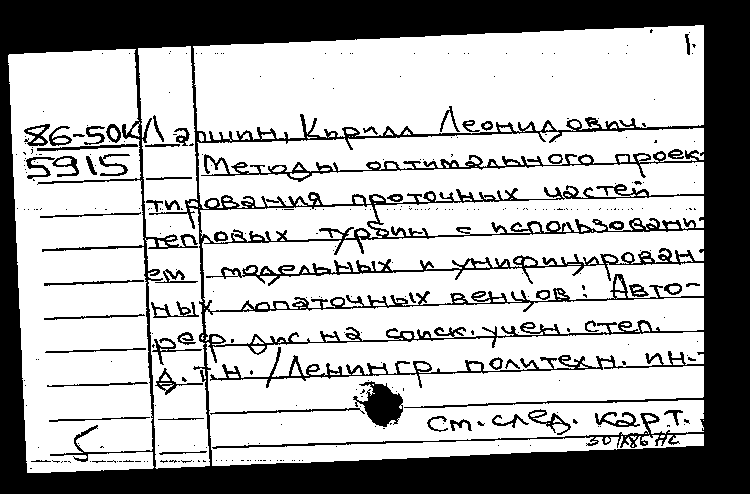 1.
86-50К Лапшин, Кирилл Леонидович.
5915 Методы оптимального проек-
тирования проточных частей
тепловых турбин с использовани-
ем модельных и унифицирован-
ных лопаточных венцов: Авто-
реф. дис. на соиск. учен. степ.
д.т.н. / Ленингр. политехн. ин-т
см. след. карт.
5